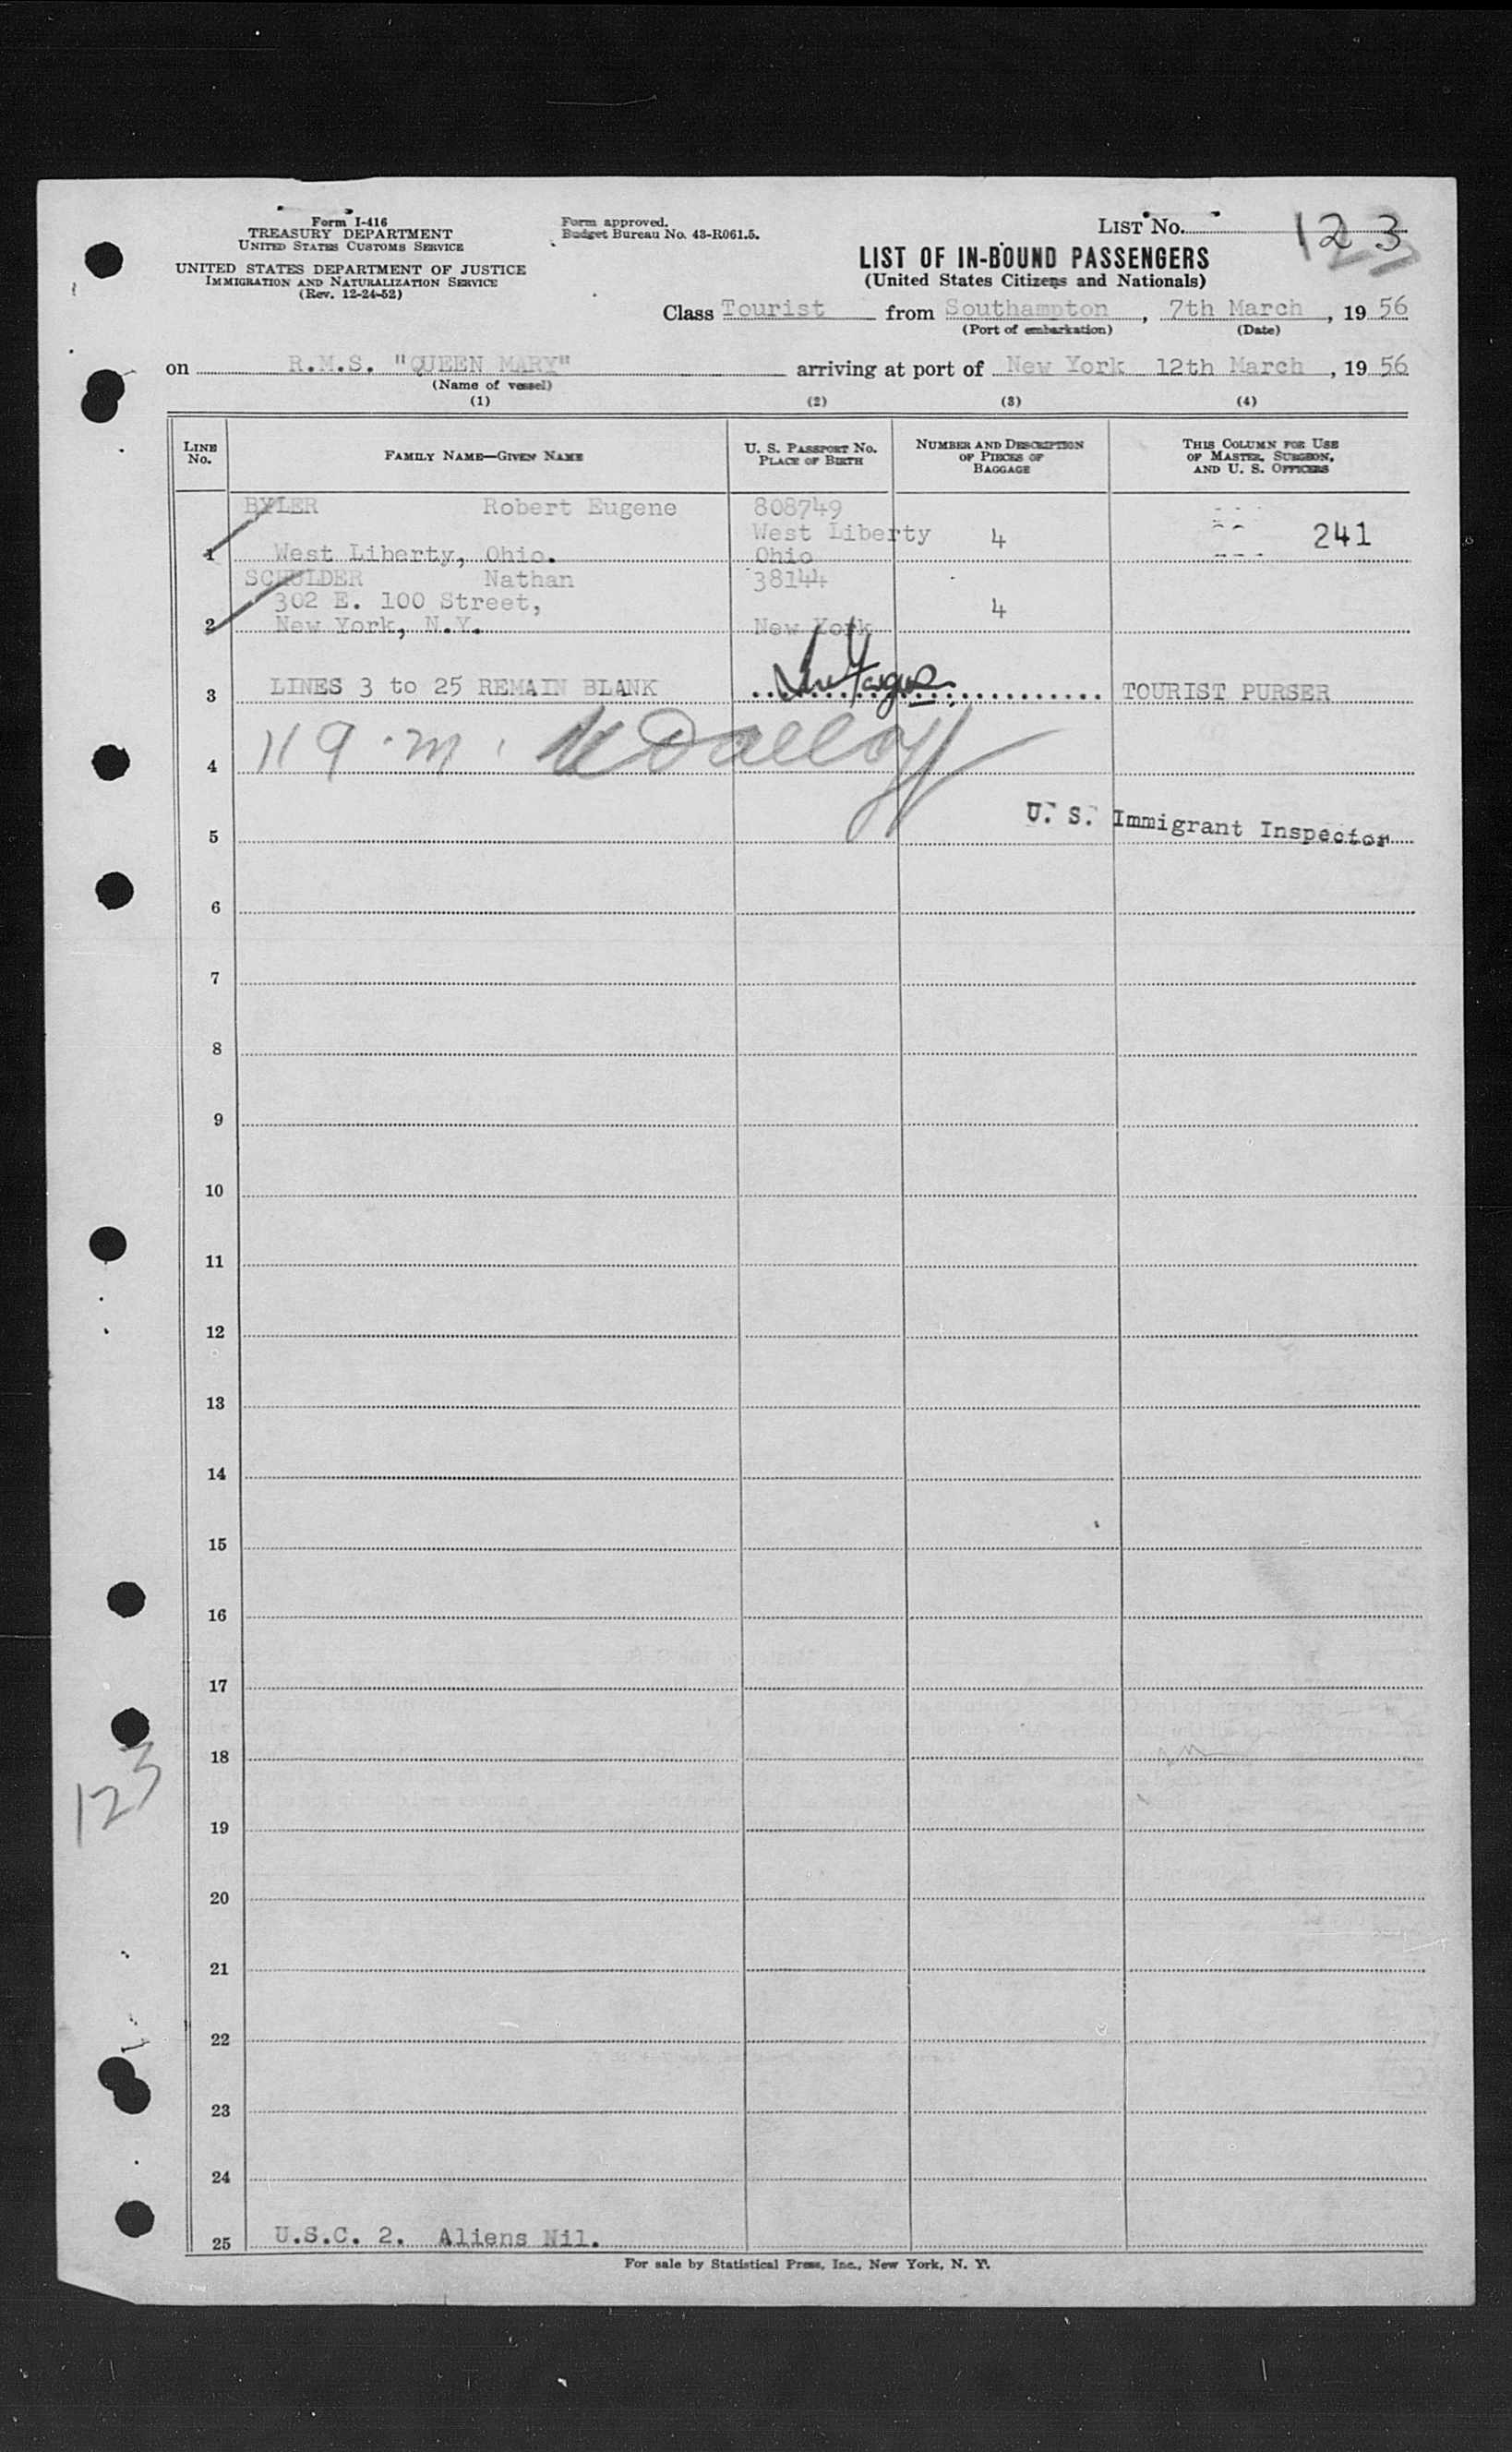 Form I-416
TREASURY DEPARTMENT
UNITED STATES CUSTOMS SERVICE
UNITED STATES DEPARTMENT OF JUSTICE
IMMIGRATION AND NATURALIZATION SERVICE
(Rev. 12-24-52)
Form approved.
Budget Bureau No. 43-R061.5.
LIST No. 123
LIST OF IN-BOUND PASSENGERS
(United States Citizens and Nationals)
Class Tourist from Southampton, 7th March, 1956
(Port of embarkation) (Date)
on R.M.S. "QUEEN MARY" arriving at port of New York 12th March, 1956
(Name of vessel)
(1) (2) (3) (4)
LINE No. FAMILY NAME—GIVEN NAME U. S. PASSPORT No. PLACE OF BIRTH NUMBER AND DESCRIPTION OF PIECES OF BAGGAGE THIS COLUMN FOR USE OF MASTER, SURGEON, AND U. S. OFFICERS
BYLER Robert Eugene 808749
West Liberty 4 241
1 West Liberty, Ohio. Ohio
SCHULDER Nathan 38144
302 E. 100 Street, 4
2 New York, N.Y. New York
3 LINES 3 to 25 REMAIN BLANK TOURIST PURSER
4
U. S. Immigrant Inspector
5
6
7
8
9
10
11
12
13
14
15
16
17
18
123
19
20
21
22
23
24
25 U.S.C. 2. Aliens Nil.
For sale by Statistical Press, Inc., New York, N. Y.